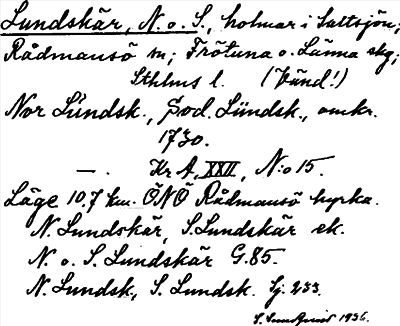 Lundskär, N. o. S., holmar i Saltsjön;
Rådmansö sn; Frötuna o. Länna skg;
Sthlms l. (Vänd!)
Nor Lündsk., Sod. Lündsk., omkr.
1730.
—. Kr A, XXII, N:o 15.
Läge 10,7 km. ÖNÖ Rådmansö kyrka.
N. Lundskär, S. Lundskär ek.
N. o. S. Lundskär G.85.
N. Lundsk., S. Lundsk. Sj. 233.
1936.